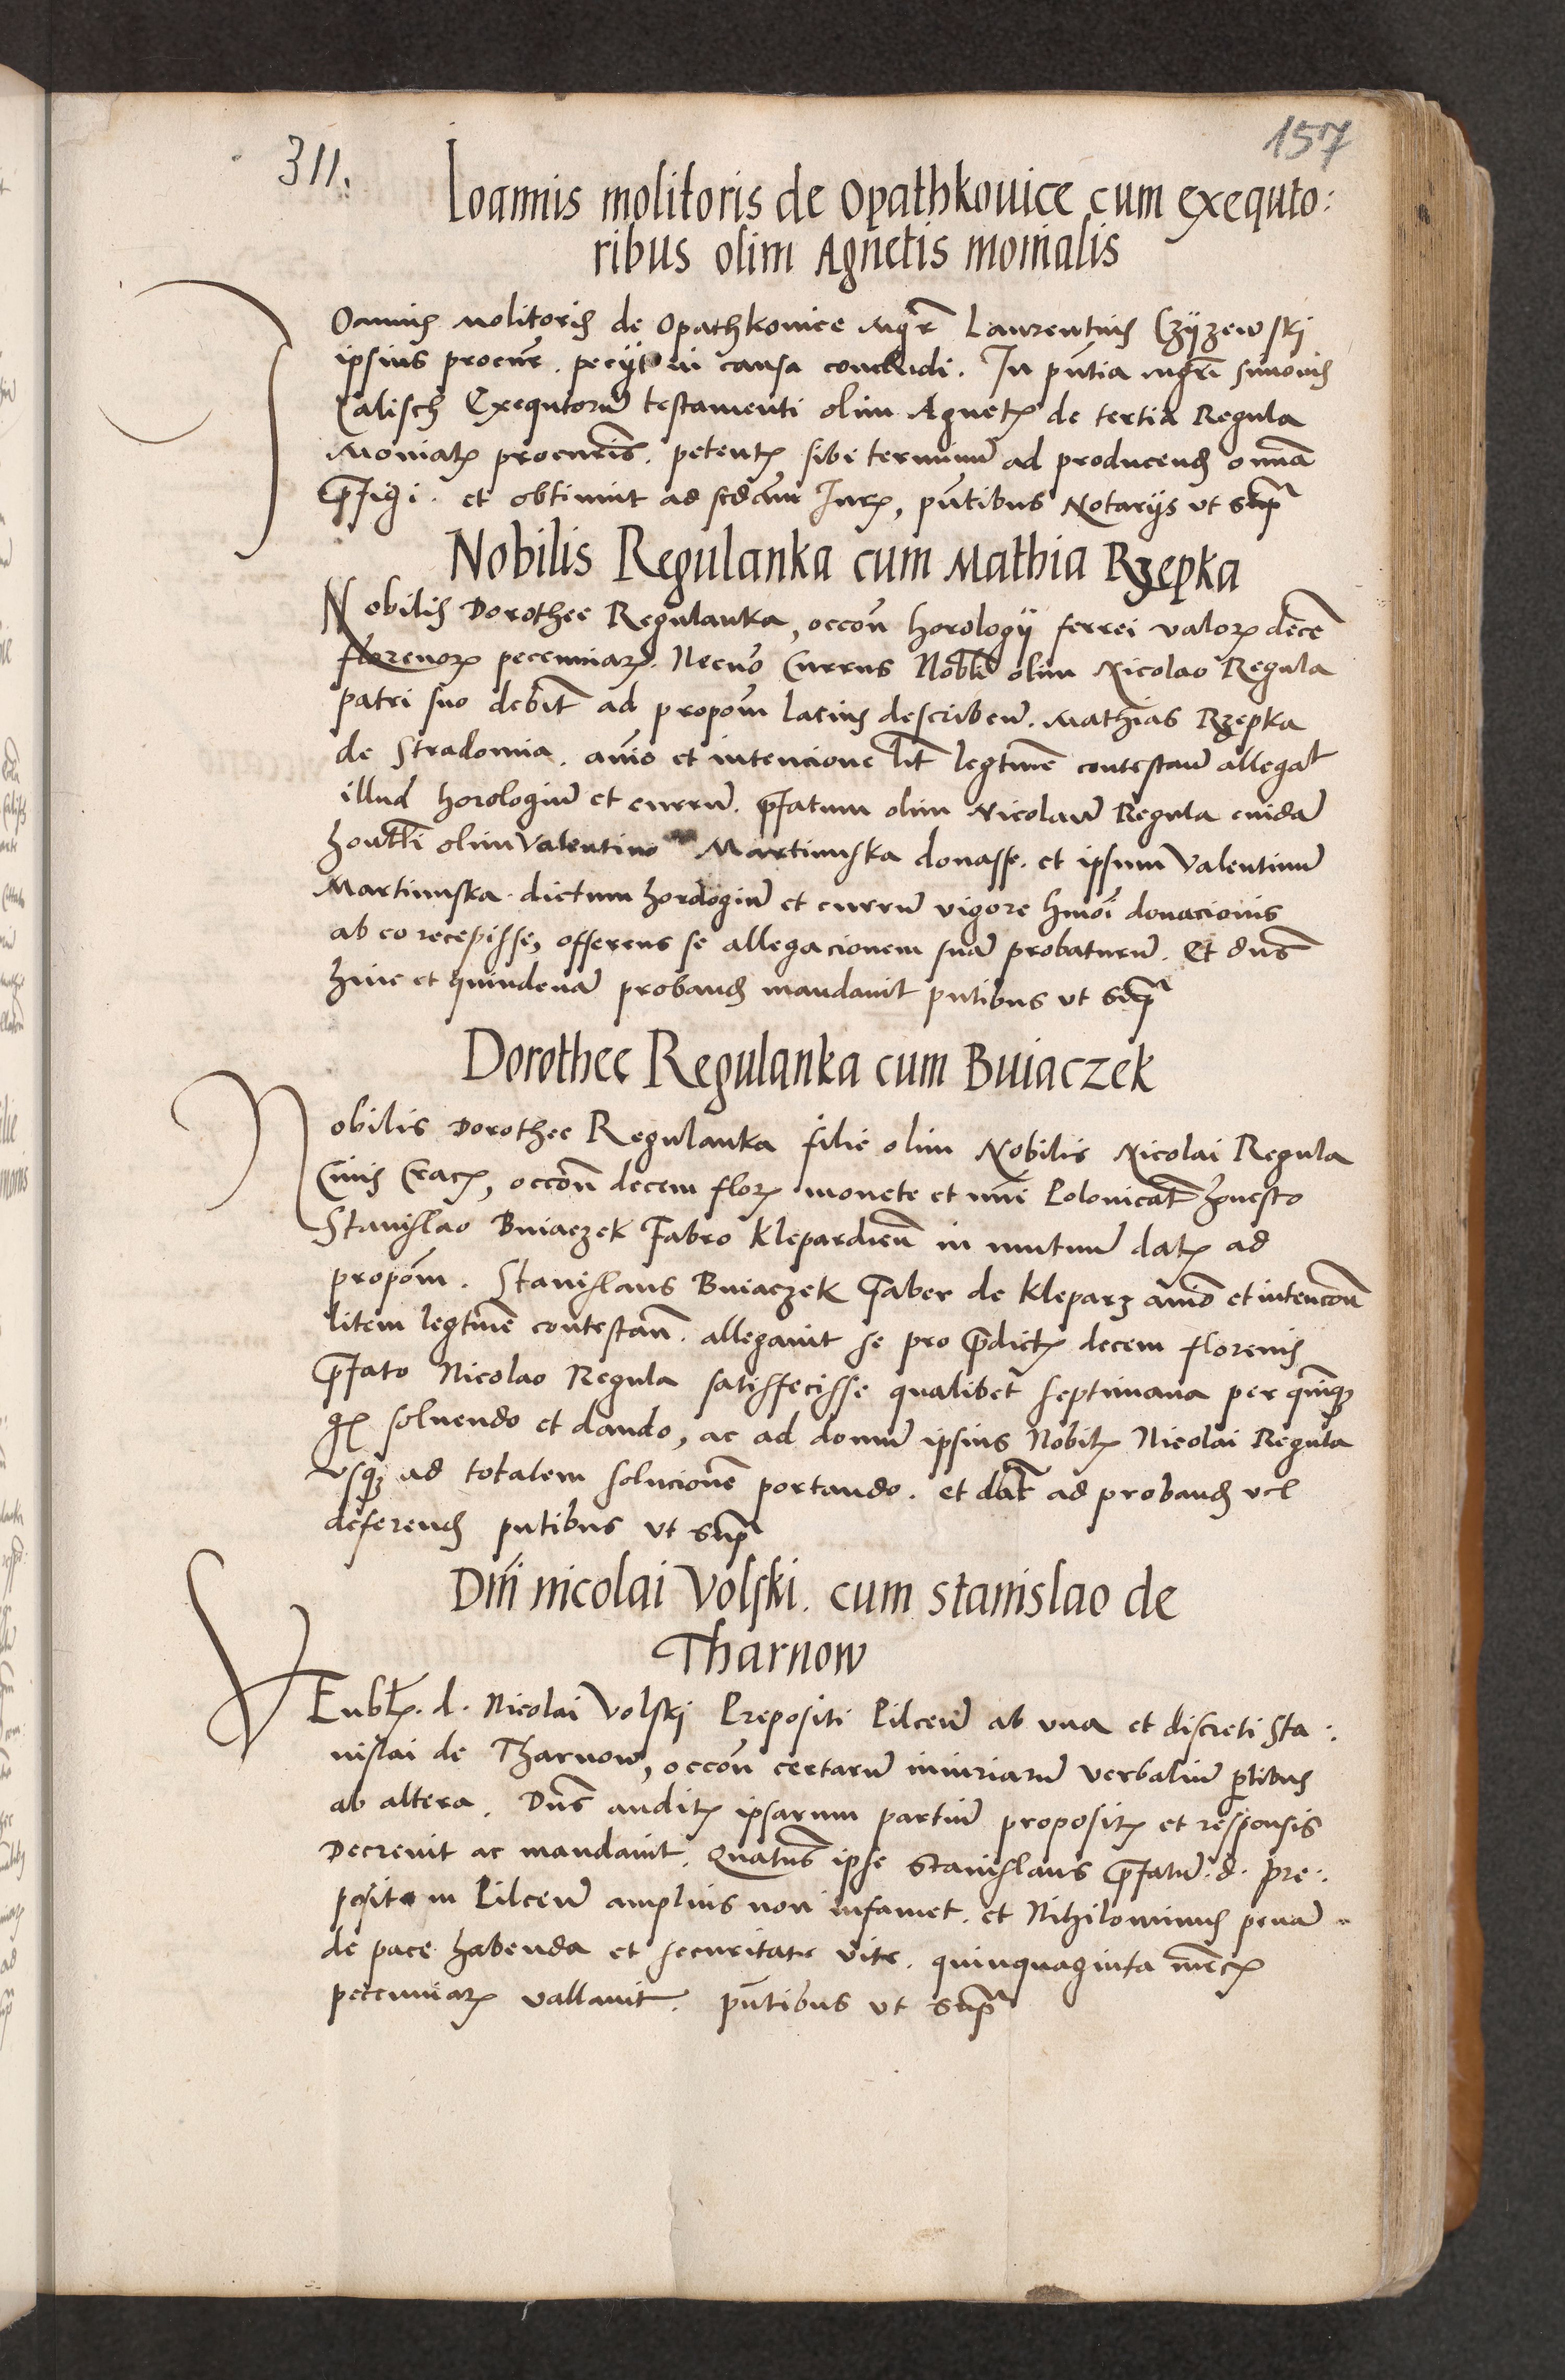 157
311.
Ioannis molitoris de Opathkouice cum exequto:
ribus olim Agnetis monialis
Ioannis Molitoris de Opathkouice Mgr̃ Laurentius Czÿzewski
ipsius procur̃. pecÿt in causa concludi. In pñtia mgr̃i Simonis
Calisch Exequtorũ testamenti olim Agnetꝭ de tertia Regula
Moniatꝭ procur̃is. petentꝭ sibi terminũ ad producendꝭ omnia
p̃figi. et obtinuit ad scd̃am Iurꝭ, pñtibus Notarijs ut sup̃
Nobilis Regulanka cum Mathia Rzepka
Nobilis Dorothee Regulanka, occoñ horologij ferrei valorꝭ decẽ
florenorꝭ pecuniarꝭ. Necnõ Currus Nobli olim Nicolao Regula
patri suo debit̃ ad propoñm latius describeñ. Mathias Rzepka
de Stradomia. aĩo et intencione lit̃ legtime contestañ allegat̃
illud horologiũ et currũ. p̃fatum olim Nicolaũ Regula cuidã
hon̄li olim Valentino Martinuska donasse. et ipsum Valentinũ
Martinuska. dictum horologiũ et currũ vigore hmõi donacionis
ab eo recepisse, offerens se allegacionem suã probaturũ. Et dñs
hinc et quindenã probandꝭ mandauit pñtibus ut sup̃
Dorothee Regulanka cum Buiaczek
Nobilis Dorothee Regulanka filie olim Nobilis Nicolai Regula
Ciuis Cracꝭ, occoñ decem florꝭ monete et nũi Polonicat̃ honesto
Stanislao Buiaczek Fabro Klepardieñ in mutuũ datꝭ ad
propoñm. Stanislaus Buiaczek Faber de Kleparz aĩo et intencoñ
litem legtime contestañ. allegauit se pro p̃dictꝭ decem florenis
p̃fato Nicolao Regula satisfecisse qualibet septimana per quinqꝫ
gꝭ soluendo et dando, ac ad domũ ipsius Nobilꝭ Nicolai Regula
vsqꝫ ad totalem solucionẽ portando. et dat̃ ad probandꝭ vel
deferendꝭ pñtibus ut sup̃
Dñi Nicolai Volski. cum Stanislao de
Tharnow
VEnblꝭ. d. Nicolai Volski Prepositi Pilceñ ab vna et discreti Sta:
nislai de Tharnow, occoñ certarũ iniuriarũ verbaliũ p̱tibus
ab altera. Dñs auditꝭ ipsarum partiũ propositꝭ et responsis
Decreuit ac mandauit. Quatũs ipse Stanislaus p̃fatũ. d. pre:
positum Pilceñ amplius non infamet. et Nihilominus penã
de pace habenda et securitate vite. quinquaginta mr̃cꝭ
pecuniarꝭ vallauit. pñtibus ut sup̃